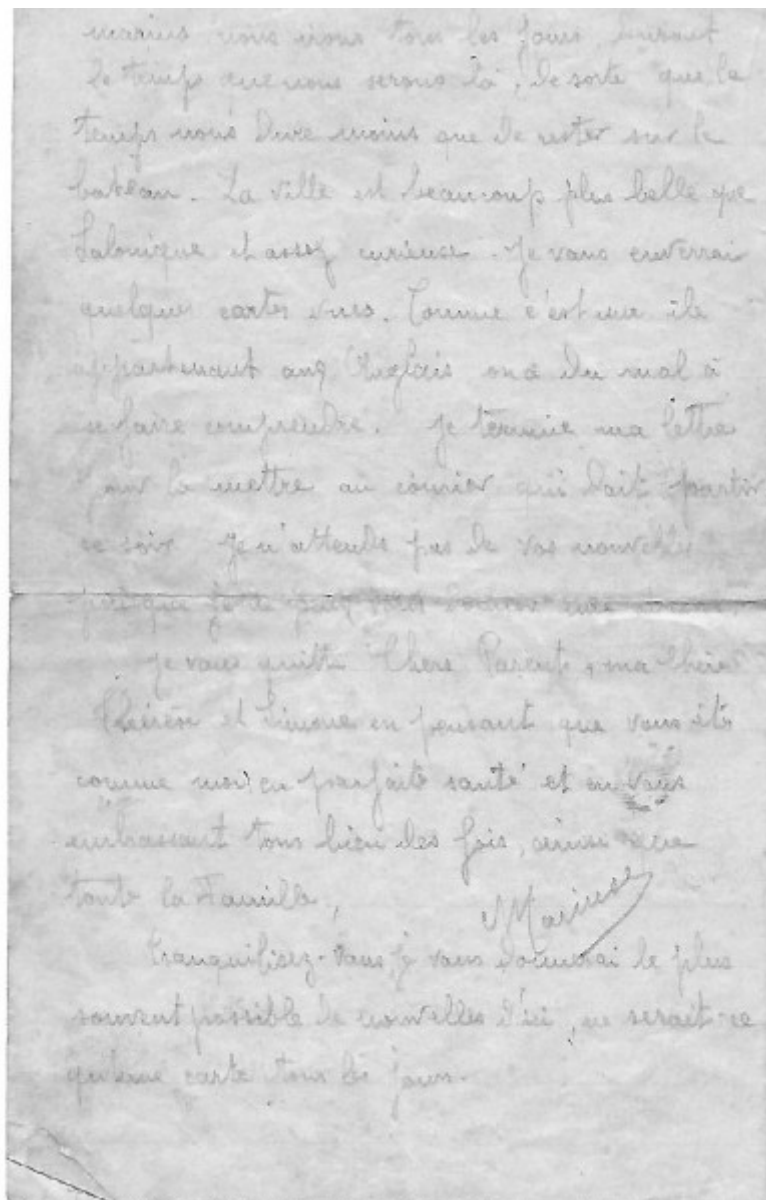 marins nous irons tous les jours durant
le temps que nous serons là, de sorte que le
temps nous dure moins que de rester sur le
bateau. La ville est beaucoup plus belle que
Salonique et assez curieuse. Je vous enverrai
quelques cartes vues. Comme c'est une île
appartenant aux Anglais on a du mal à
se faire comprendre. Je termine ma lettre
pour la mettre au courrier qui doit partir
ce soir. Je n'attends pas de vos nouvelles
puisque je ne puis vous donner une adresse.
Je vous quitte Chers Parents, ma chère
Thérèse et Simone en pensant que vous êtes
comme moi en parfaite santé et en vous
embrassant tous bien des fois, ainsi que
toute la Famille,
Mariuse
Tranquilisez-vous, je vous donnerai le plus
souvent possible de nouvelles d'ici, ne serait-ce
qu'une carte tous les jours.